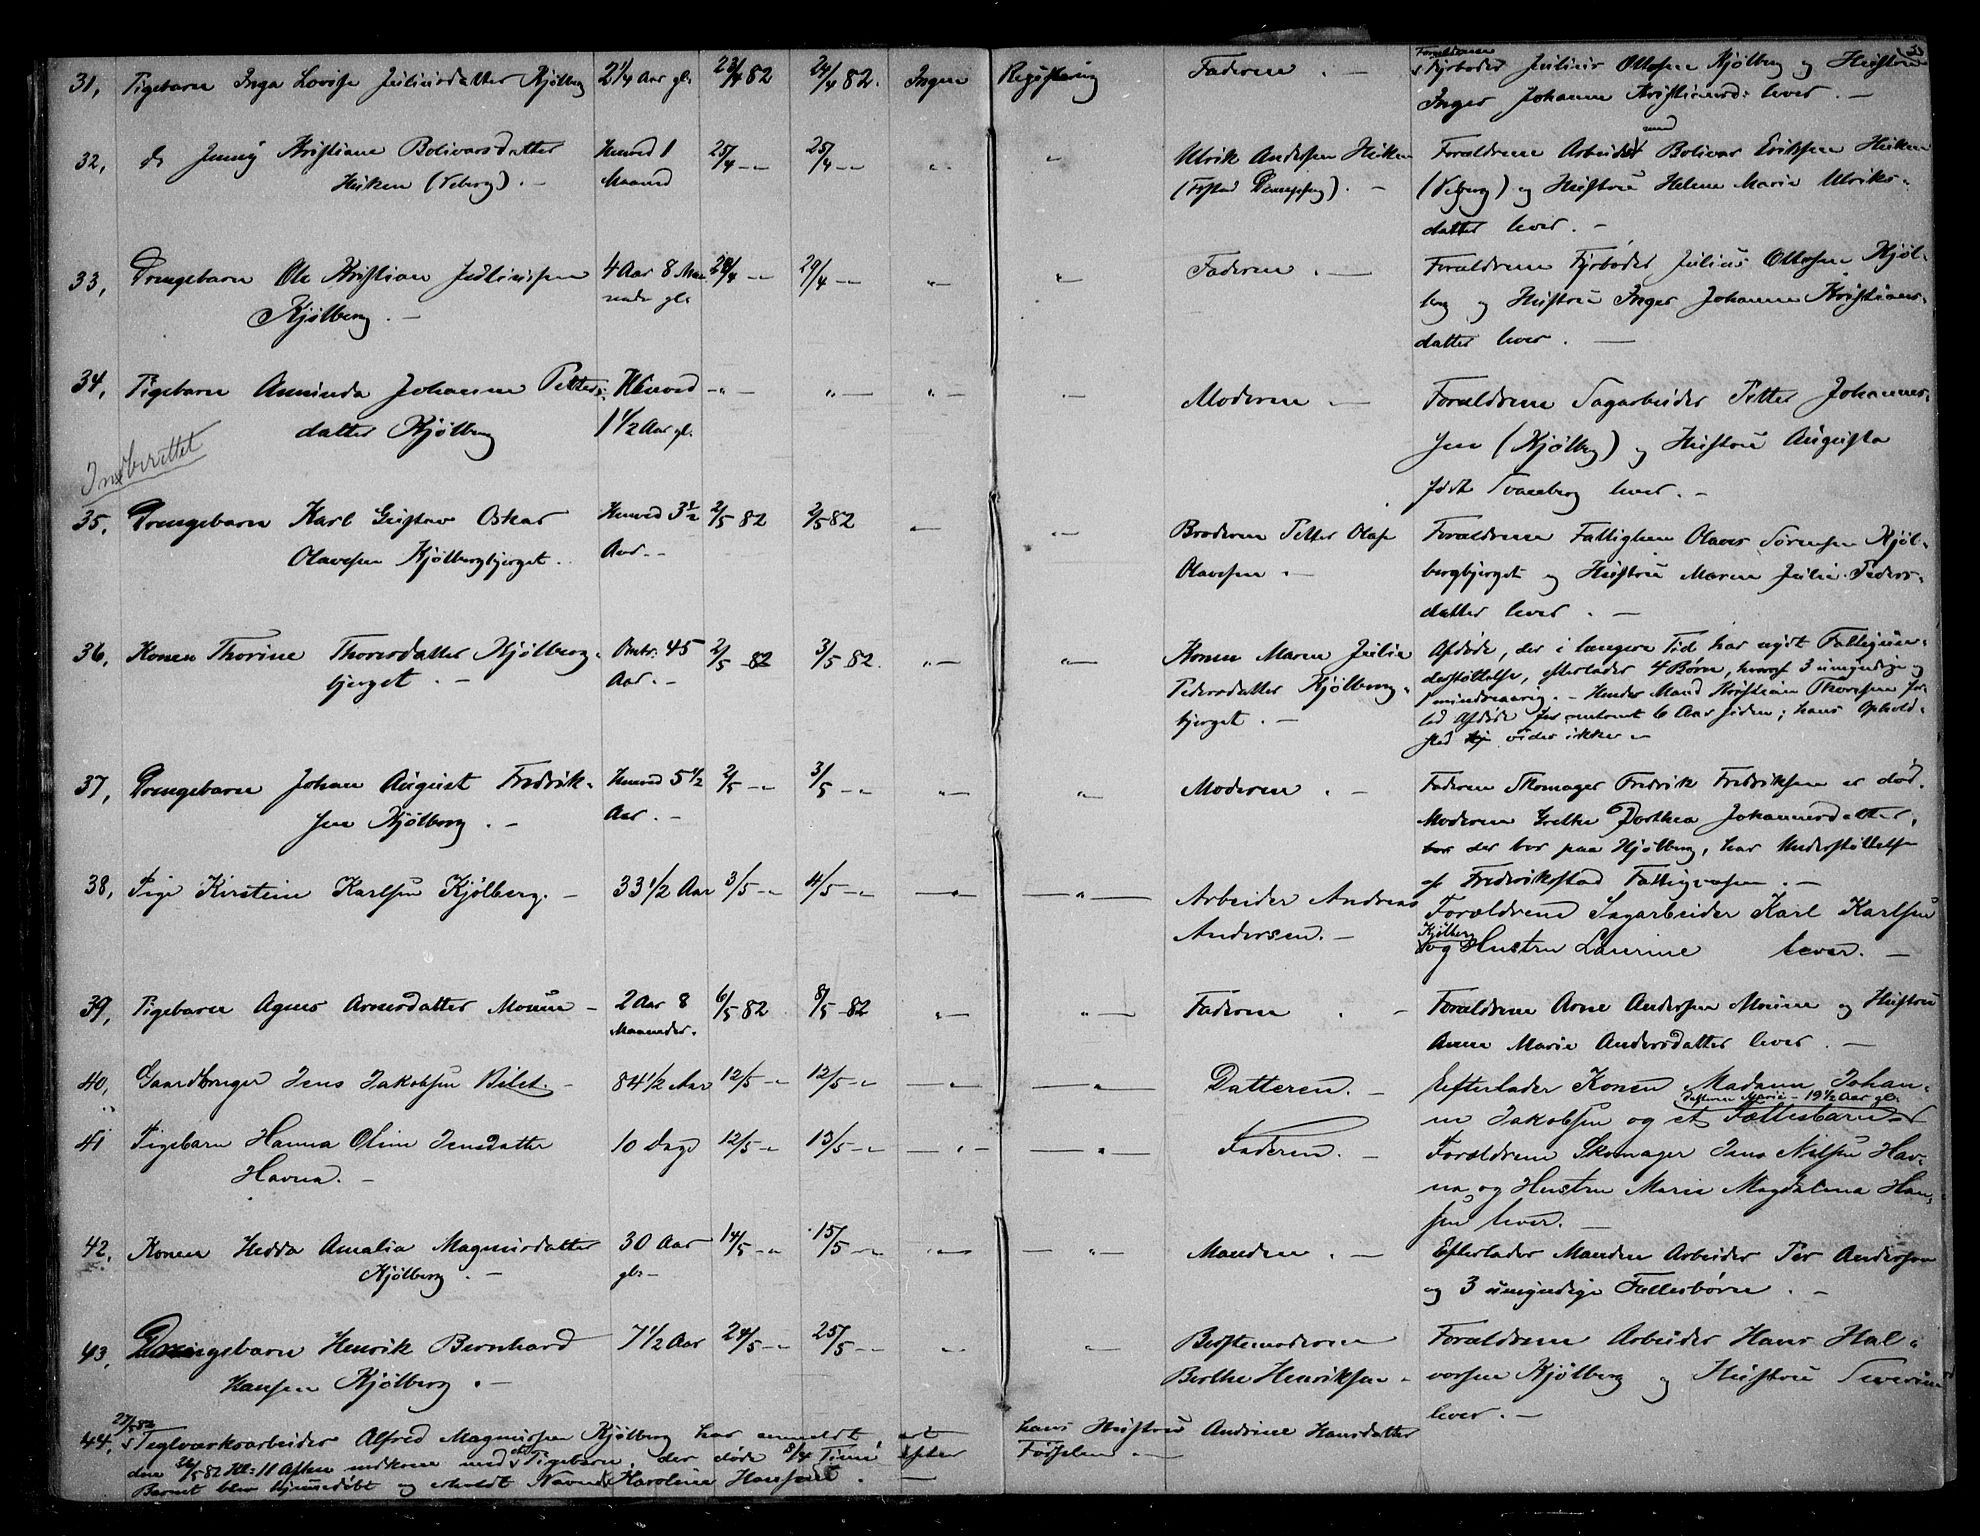 31, Pigebarn Inga Lovise Juliusdatter Kjølberg 2 1/4 Aar gl. 23/4 82 24/4 82. Ingen Registering Faderen . — Forældrene Fyrbøder Julius Ottosen Kjølberg og Hustru
Inger Johanne Kristiansd: lever . —
32, do Jenny Kristiane Bolivarsdatter Henved 1 25/4 —„ 25/4 —„ „ „ Ulrik Andersen Huken Forældrene Arbeidsmand Bolivar Eriksen Huken
Huken (Veberg) . — Maaned (Ostad) . — (Veberg) og Hustru Helene Marie Ulriks-
datter lever . —
33, Drengebarn Ole Kristian Juliussen 4 Aar 8 Maa 28/4 —„ 29/4 —„ „ „ Faderen . — Forældrene Fyrbøder Julius Ottosen Kjøl-
Kjølberg . — neder gl. berg og Hustru Inger Johanne Kristians-
datter lever . —
34, Pigebarn Aminda Johanne Petters- Henved —„— „— „— „ Moderen . — Forældrene Sagarbeider Petter Johannes-
datter Kjølberg 1 1/2 Aar gl. sen (Kjølberg) og Hustru Augusta
Indberettet
født Svaneberg lever . —
35, Drengebarn Karl Gustav Oskar Henved 3 1/2 2/5 82 2/5 82 „— „— Broderen Petter Olaf Forældrene Fattiglem Olaves Sørensen Kjøl-
Olavesen Kjølbergbjerget . Aar.— Olavesen . — bergbjerget og Hustru Maren Julie Peders-
datter lever . —
36, Konen Thorine Thoresdatter Kjølberg- Omtr. 45 2/5 82 3/5 82. „— „— Konen Maren Julie Afdøde, der i længere Tid har nydt Fattigun-
bjerget . — Aar.— Pedersdatter Kjølberg- derstøttelse, efterlader 4 Børn, hvoraf 3 umyndige og
bjerget . — 1 mindreaarig. — Hendes Mand Kristian Thoresen for-
lod Afdøde for omtrent 6 Aar siden; hans Ophold-
sted vides ikke. —
37, Drengebarn Johan August Fredrik- Henved 5 1/2 2/5 —„ 3/5 —„ „— „— Moderen . — Faderen Skomager Fredrik Fredriksen er død.
sen Kjølberg . — Aar . — Moderen Grethe Dorthea Johannesdatter,
der bor paa Kjølberg, har Understøttelse
af Frederikstad Fattigvæsen . —
38, Pige Kirstine Karlsen Kjølberg. — 33 1/2 Aar 3/5 —„ 4/5 —„ —„— —„— Arbeider Andreas Forældrene Sagarbeider Karl Karlsen
Andersen. — Kjølberg og Hustru Laurine lever. —
39, Pigebarn Agnes Arnesdatter Moum — 2 Aar 8 6/5 82 8/5 82 „— „— Faderen . — Forældrene Arne Andersen Moum og Hustru
Maaneder. Anne Marie Andersdatter lever . —
40, Gaardbruger Jens Jakobsen Bilet. — 84 1/2 Aar 12/5 —„ 12/5 —„ —„— —„— Datteren. — Efterlader Konen Madam Johan-
ne Jakobsen og et Fællesbarn Datteren Marie — 19 1/2 Aar gl.
41 Pigebarn Hanna Oline Jensdatter 10 Dage 12/5 —„ 13/5 —„ —„— —„— Faderen. — Forældrene Skomager Jens Nilsen Hav-
Havna. — na og Hustru Maria Magdalena Han-
sen lever. —
42, Konen Hedda Amalia Magnusdatter 30 Aar 14/5 —„ 15/5 —„ „— —„— Manden . — Efterlader Manden Arbeider Per Andersen
Kjølberg . — gl. — og 3 umyndige Fællesbørn . —
43, Drengebarn Henrik Bernhard 7 1/2 Aar 24/5 —„ 25/5 —„ „ „ Bestemoderen Forældrene Arbeider Hans Hal-
Hansen Kjølberg . — Berthe Henriksen . vorsen Kjølberg og Hustru Severine
lever . —
27/5 82
44, Teglværksarbeider Alfred Magnussen Kjølberg har anmeldt at hans Hustru Andrine Hansdatter
den 26/5 82 Kl: 11 Aften nedkom med et Pigebarn, der døde 3/4 Time efter Fødselen . —
Barnet blev hjemmedøbt og erholdt Navnet Karoline . —